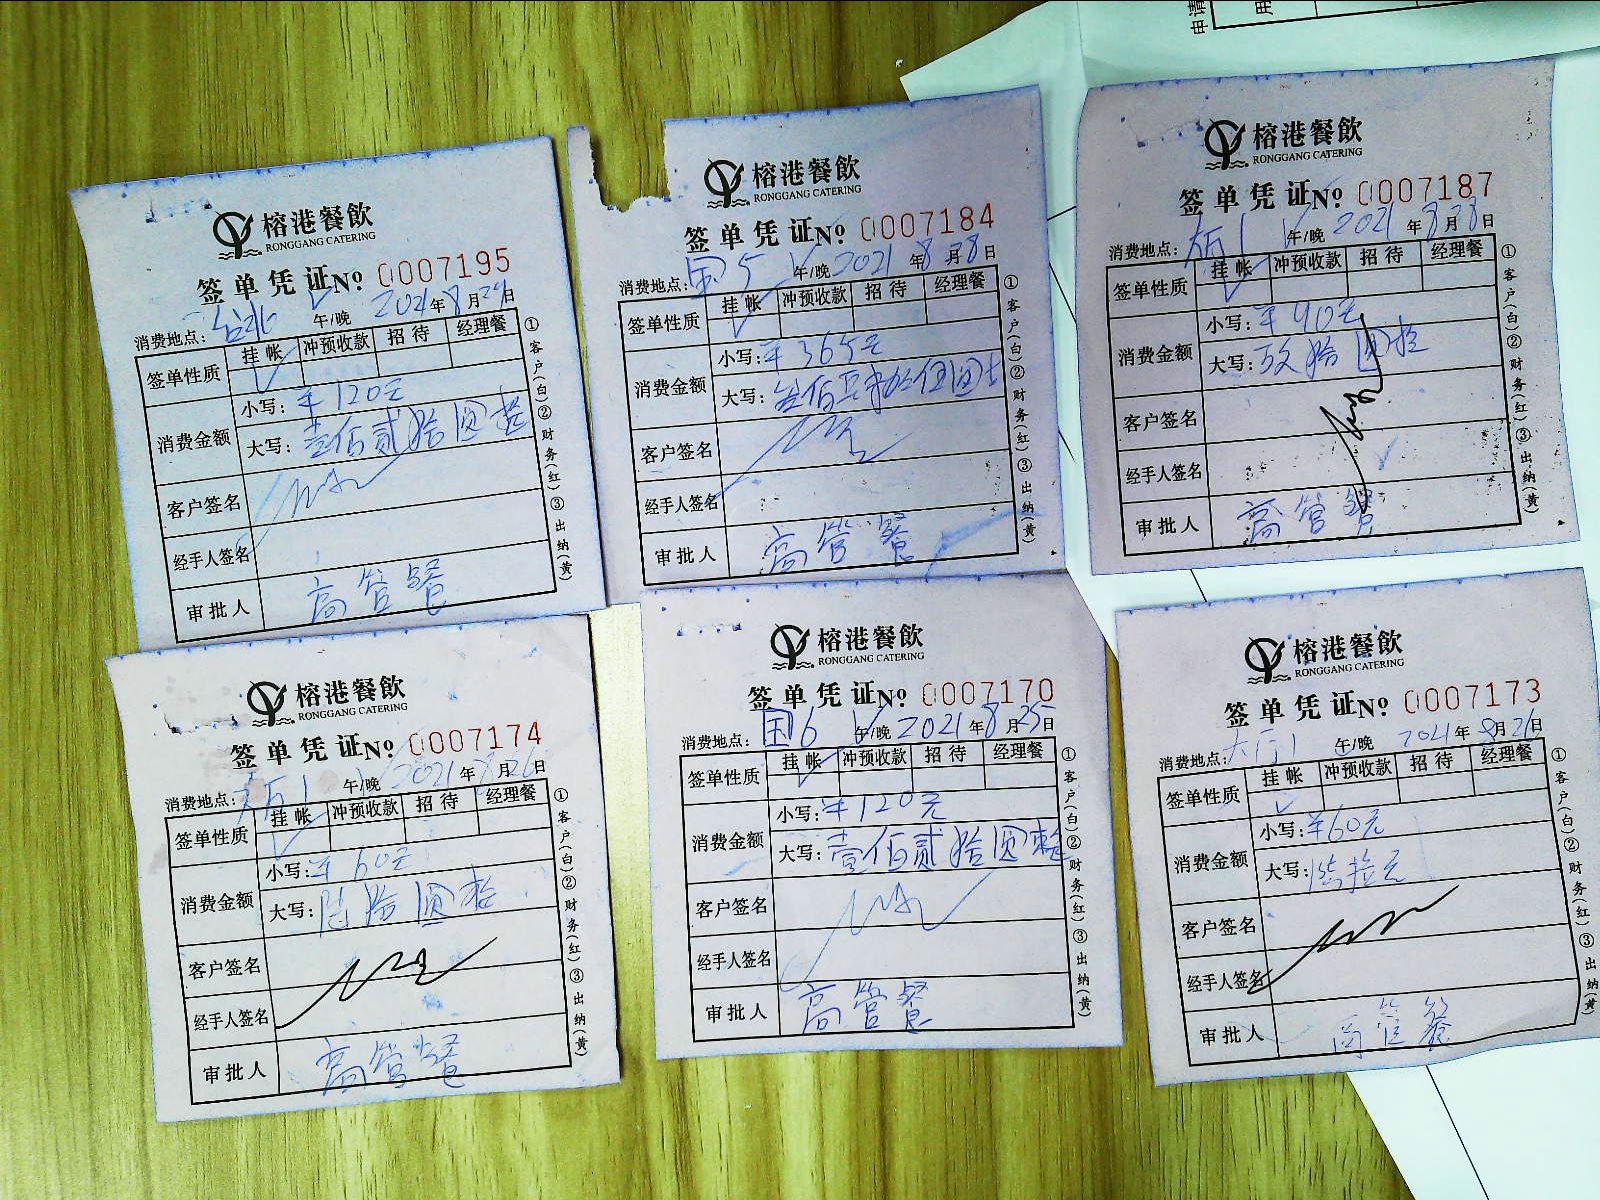 申请
用
榕港餐飲
RONGGANG CATERING
签单凭证No 0007195
消费地点：台北 午/晚 2021年8月29日
签单性质 挂帐 冲预收款 招待 经理餐
消费金额
小写：￥120元
大写：壹佰贰拾圆整
客户签名
经手人签名
审批人 高管餐
①客户(白)②财务(红)③出纳(黄)
榕港餐飲
RONGGANG CATERING
签单凭证No 0007184
消费地点：国5 午/晚 2021年8月28日
签单性质 挂帐 冲预收款 招待 经理餐
消费金额
小写：￥365元
大写：叁佰陆拾伍圆
客户签名
经手人签名
审批人 高管餐
①客户(白)②财务(红)③出纳(黄)
榕港餐飲
RONGGANG CATERING
签单凭证No 0007187
消费地点：大厅1 午/晚 2021年8月28日
签单性质 挂帐 冲预收款 招待 经理餐
消费金额
小写：
大写：拾圆整
客户签名
经手人签名
审批人 高管餐
①客户(白)②财务(红)③出纳(黄)
榕港餐飲
RONGGANG CATERING
签单凭证No 0007174
消费地点：大厅1 午/晚 2021年8月26日
签单性质 挂帐 冲预收款 招待 经理餐
消费金额
小写：￥60元
大写：陆拾圆整
客户签名
经手人签名
审批人 高管餐
①客户(白)②财务(红)③出纳(黄)
榕港餐飲
RONGGANG CATERING
签单凭证No 0007170
消费地点：国6 午/晚 2021年8月25日
签单性质 挂帐 冲预收款 招待 经理餐
消费金额
小写：￥120元
大写：壹佰贰拾圆整
客户签名
经手人签名
审批人 高管餐
①客户(白)②财务(红)③出纳(黄)
榕港餐飲
RONGGANG CATERING
签单凭证No 0007173
消费地点：大厅1 午/晚 2021年8月26日
签单性质 挂帐 冲预收款 招待 经理餐
消费金额
小写：￥60元
大写：陆拾元
客户签名
经手人签名
审批人 高管餐
①客户(白)②财务(红)③出纳(黄)